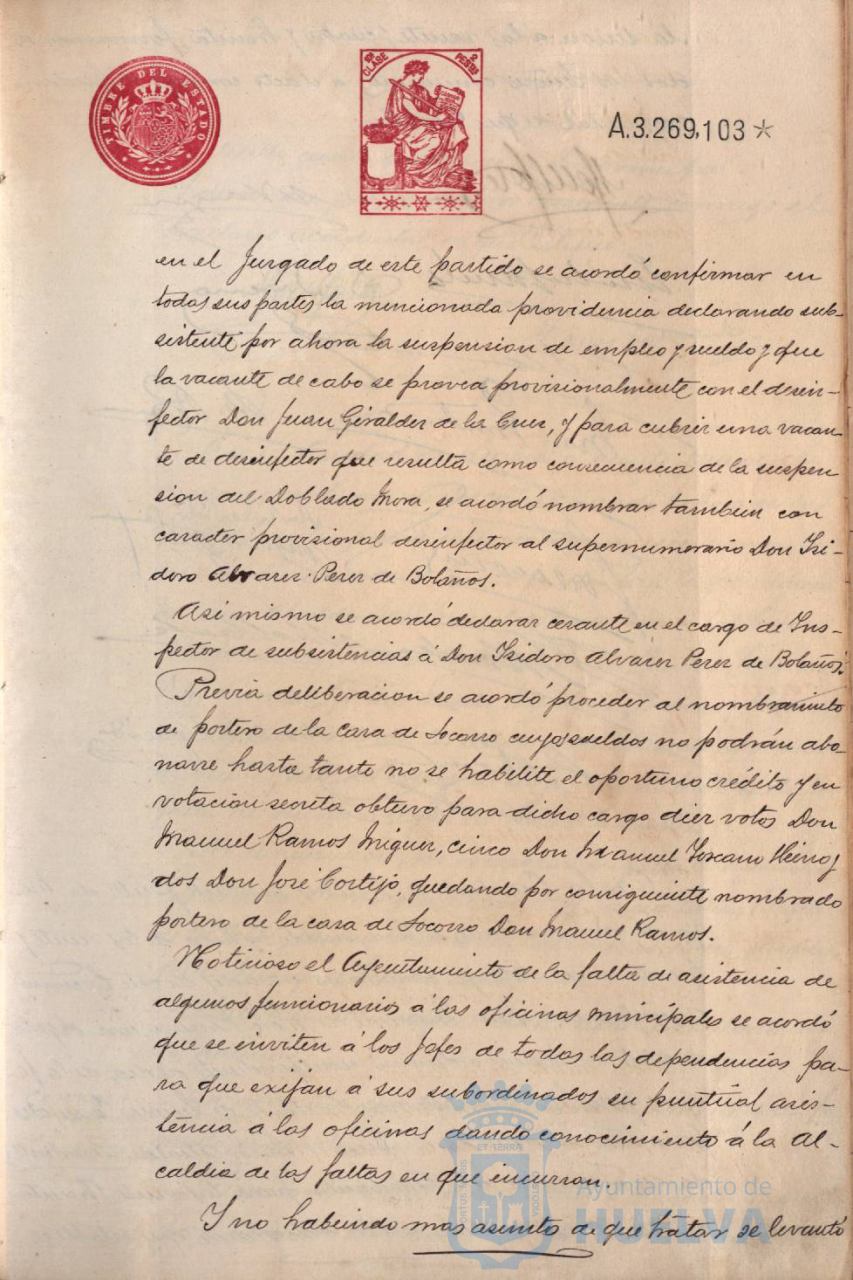 TIMBRE DEL ESTADO
CLASE
2 PESETAS
A.3.269,103 *
en el Juzgado de este partido se acordó confirmar en
todas sus partes la mencionada providencia declarando sub-
sistente por ahora la suspension de empleo y sueldo y que
la vacante de cabo se provea provisionalmente con el desin-
fector Don Juan Giraldez de la Cruz, y para cubrir una vacan-
te de desinfector que resulta como consecuencia de la suspen
sion del Doblado Mora, se acordó nombrar tambien con
caracter provisional desinfector al supernumerario Don Isi-
doro Alvarez Perez de Bolaños.
Asi mismo se acordó declarar cesante en el cargo de Ins-
pector de subsistencias á Don Isidoro Alvarez Perez de Bolaños.
Previa deliberacion se acordó proceder al nombramiento
de portero de la Casa de Socorro cuyos sueldos no podrán abo
narse hasta tanto no se habilite el oportuno crédito y en
votacion secreta obtuvo para dicho cargo diez votos Don
Manuel Ramos Miguez, cinco Don Manuel Toscano y
dos Don José Cortijo, quedando por consiguiente nombrado
portero de la casa de Socorro Don Manuel Ramos.
Noticioso el Ayuntamiento de la falta de asistencia de
algunos funcionarios á las oficinas municipales se acordó
que se inviten á los Jefes de todas las dependencias pa-
ra que exijan á sus subordinados su puntual asis-
tencia á las oficinas dando conocimiento á la Al-
caldia de las faltas en que incurran.
Y no habiendo mas asunto de que tratar se levantó
Ayuntamiento de
HUELVA